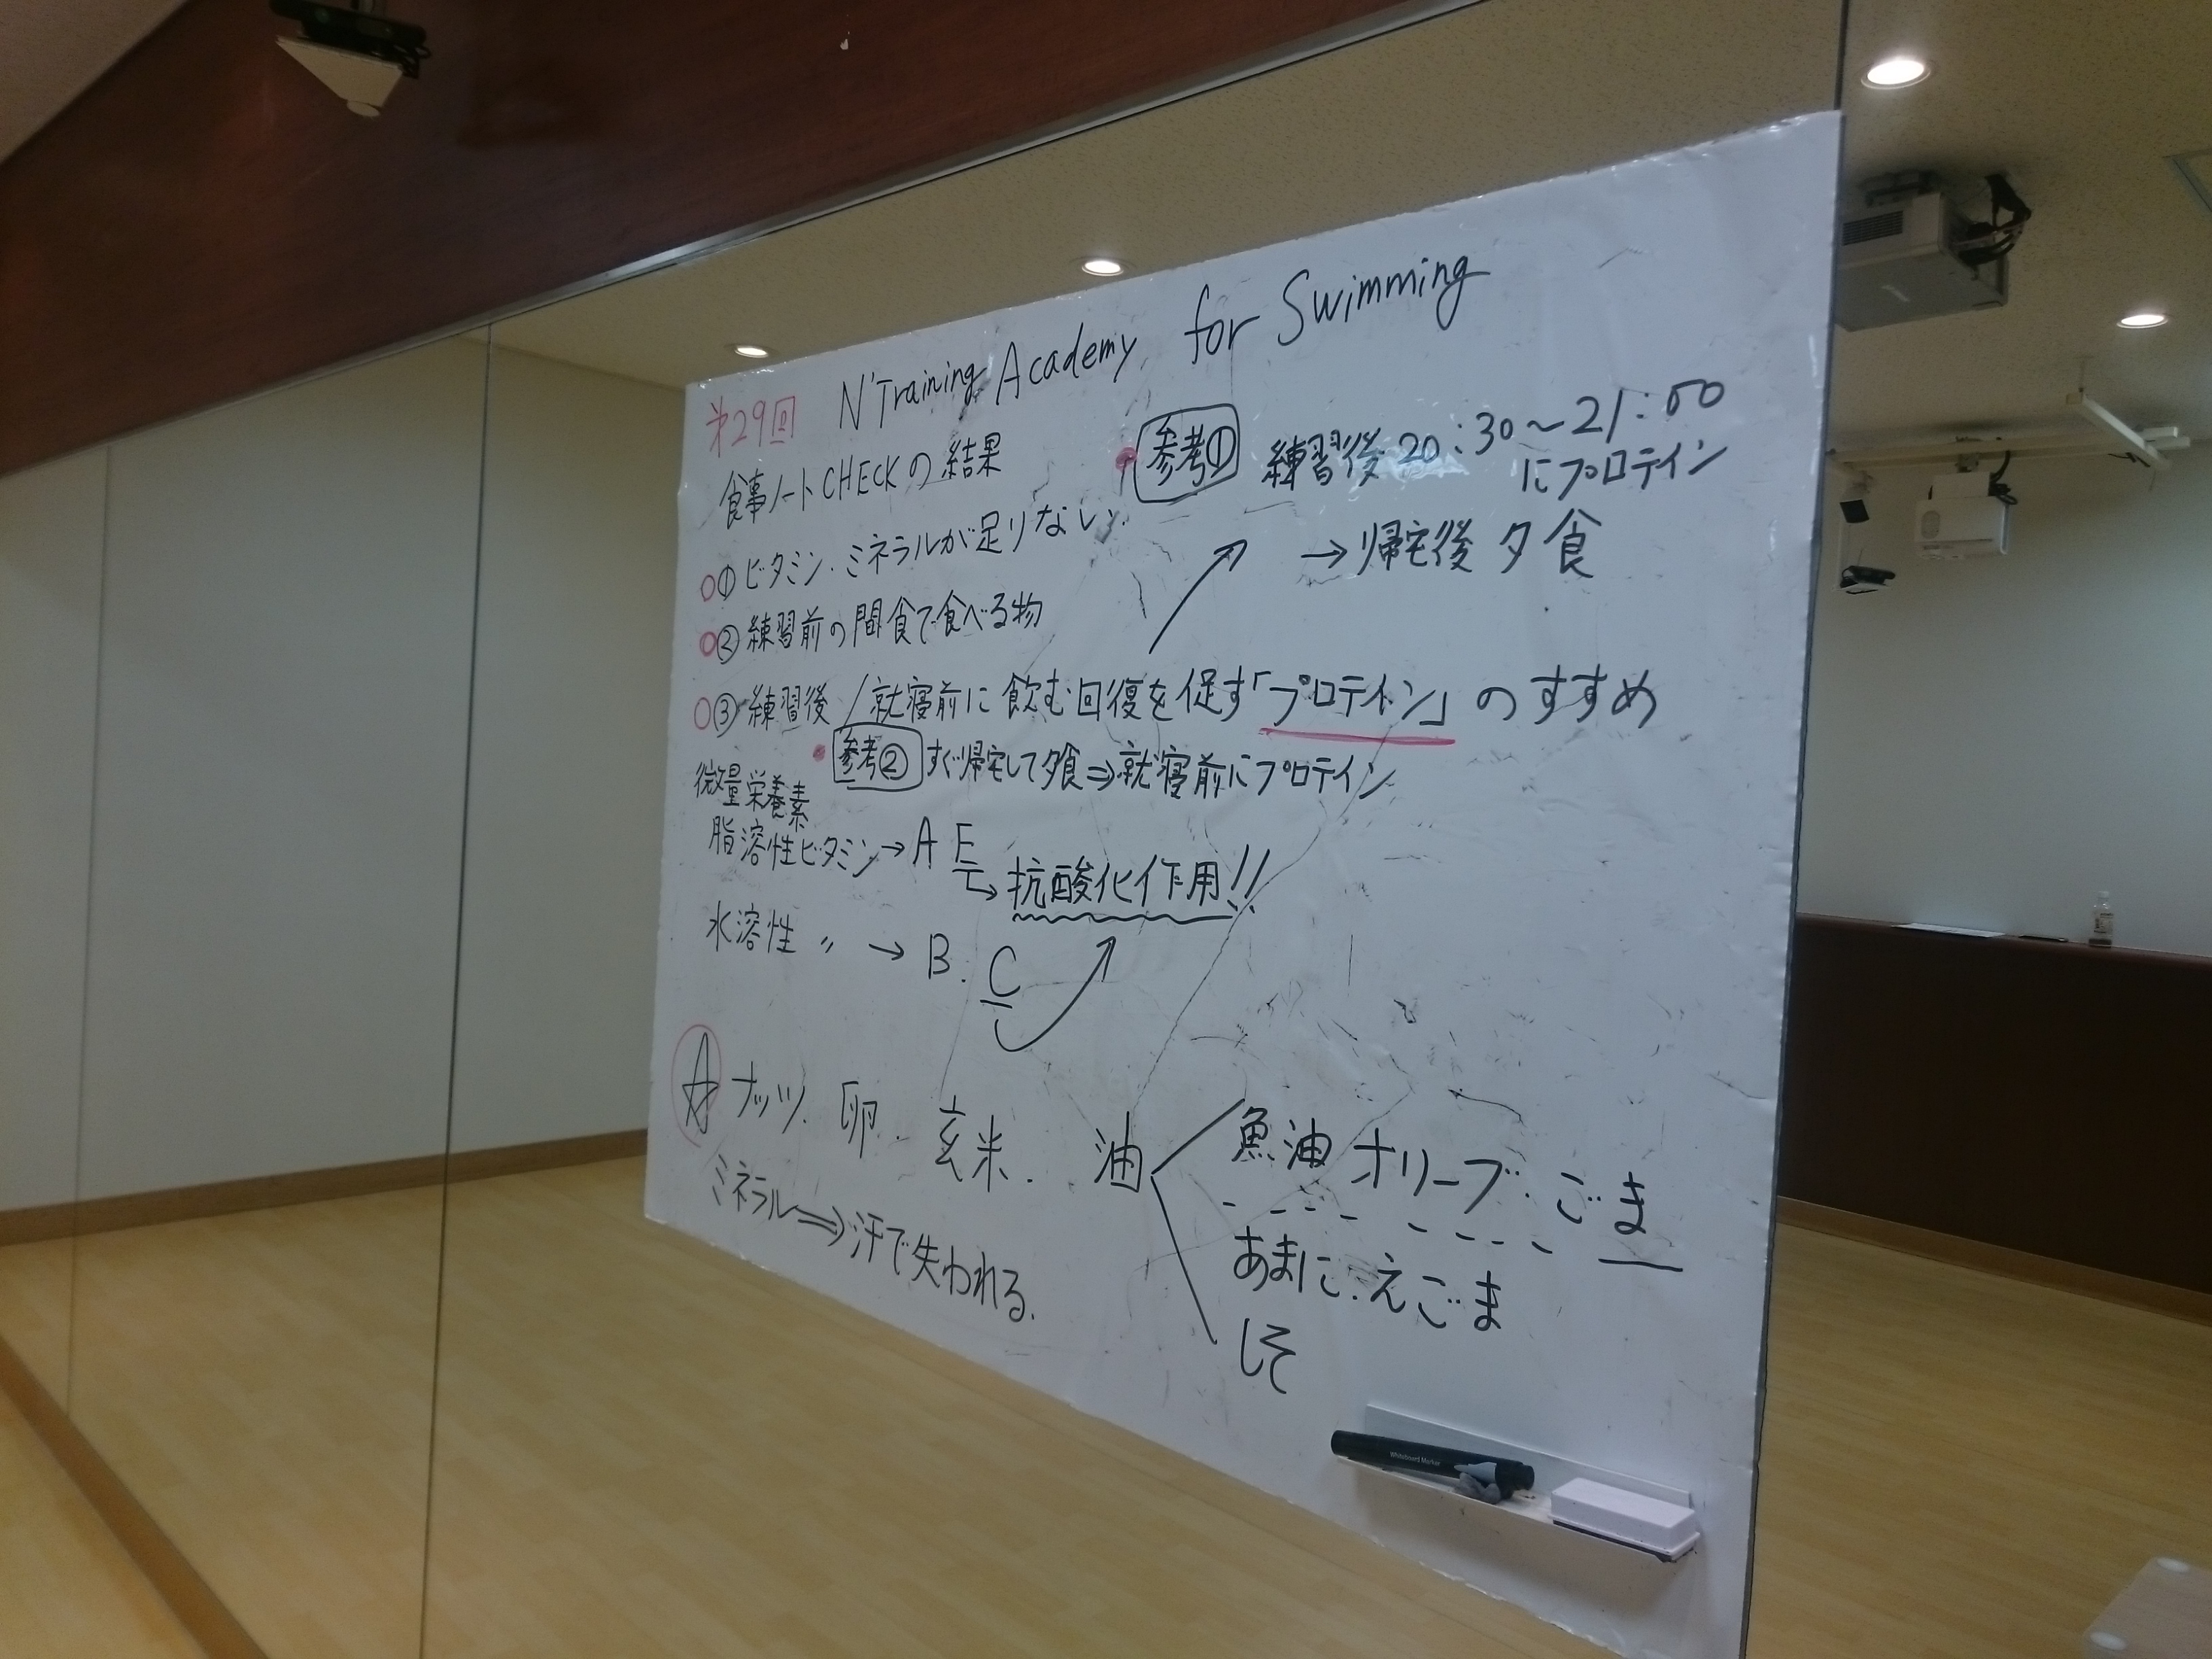 第29回 N'Training Academy for Swimming
食事ノートCHECKの結果
①ビタミン・ミネラルが足りない
②練習前の間食で食べる物
参考① 練習後 20:30〜21:00
にプロテイン
→帰宅後 夕食
③練習後/就寝前に飲む回復を促す「プロテイン」のすすめ
参考② すぐ帰宅して夕食⇒就寝前にプロテイン
微量栄養素
脂溶性ビタミン→A E
→抗酸化作用!!
水溶性 〃 → B. C
☆ ナッツ. 卵. 玄米. 油
魚油 オリーブ. ごま
あまに. えごま
しそ
ミネラル⇒汗で失われる.
Whiteboard Marker